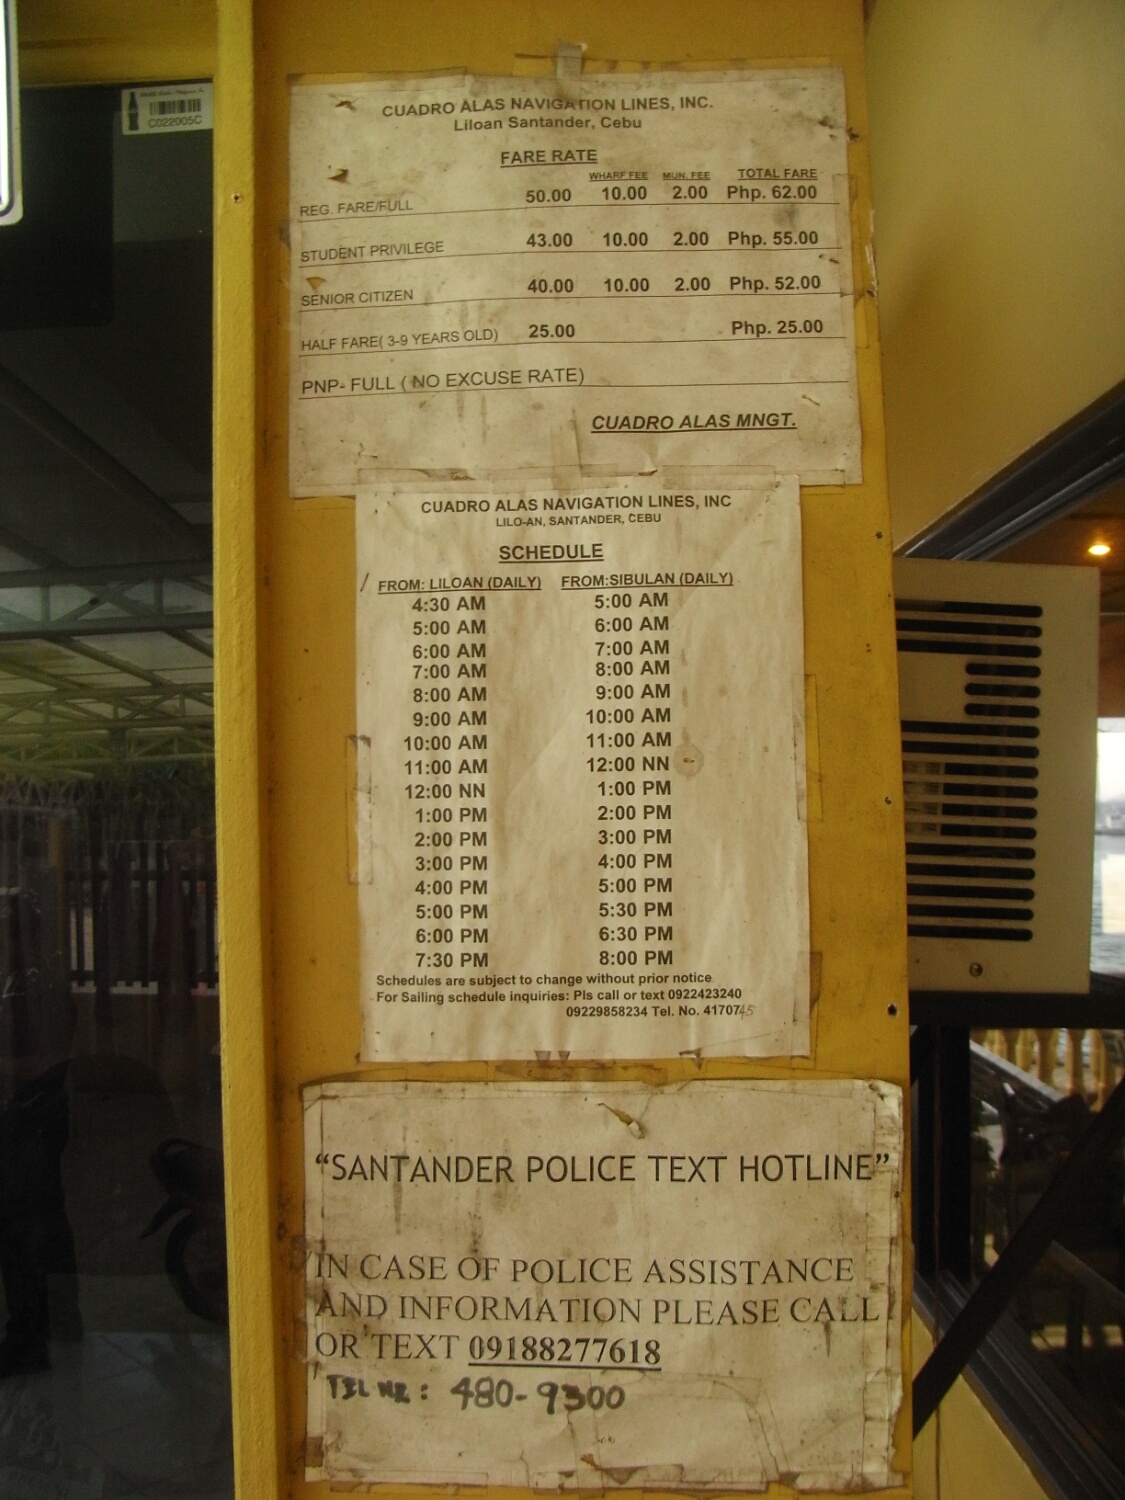 C022005C
CUADRO ALAS NAVIGATION LINES, INC.
Liloan Santander, Cebu
FARE RATE
WHARF FEE MUN. FEE TOTAL FARE
REG. FARE/FULL 50.00 10.00 2.00 Php. 62.00
STUDENT PRIVILEGE 43.00 10.00 2.00 Php. 55.00
SENIOR CITIZEN 40.00 10.00 2.00 Php. 52.00
HALF FARE( 3-9 YEARS OLD) 25.00 Php. 25.00
PNP- FULL ( NO EXCUSE RATE)
CUADRO ALAS MNGT.
CUADRO ALAS NAVIGATION LINES, INC
LILO-AN, SANTANDER, CEBU
SCHEDULE
FROM: LILOAN (DAILY) FROM:SIBULAN (DAILY)
4:30 AM 5:00 AM
5:00 AM 6:00 AM
6:00 AM 7:00 AM
7:00 AM 8:00 AM
8:00 AM 9:00 AM
9:00 AM 10:00 AM
10:00 AM 11:00 AM
11:00 AM 12:00 NN
12:00 NN 1:00 PM
1:00 PM 2:00 PM
2:00 PM 3:00 PM
3:00 PM 4:00 PM
4:00 PM 5:00 PM
5:00 PM 5:30 PM
6:00 PM 6:30 PM
7:30 PM 8:00 PM
Schedules are subject to change without prior notice
For Sailing schedule inquiries: Pls call or text 0922423240
09229858234 Tel. No. 4170745
"SANTANDER POLICE TEXT HOTLINE"
IN CASE OF POLICE ASSISTANCE
AND INFORMATION PLEASE CALL
OR TEXT 09188277618
TEL NR: 480-9300